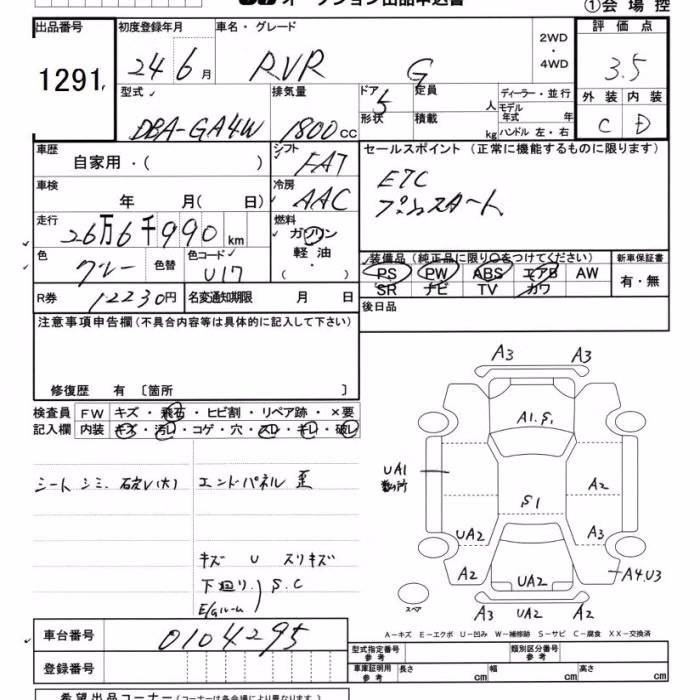 オークション出品申込書
①会場控
出品番号 初度登録年月 車名・グレード 評価点
1291
24 6 月 RVR G
2WD
・
4WD
3.5
型式 排気量 ドア 定員 ディーラー・並行 外装 内装
DBA-GA4W 1800 cc 5 人 モデル年式 年 C D
形状 積載 kg ハンドル 左・右
車歴 シフト セールスポイント (正常に機能するものに限ります)
自家用・( ) FAT
ETC
車検 冷房
年 月( 日) AAC
プッシュスタート
走行 燃料
26万6千990 km ガソリン
軽油
( ・ )
色 色替 色コード
グレー U17
装備品 (純正品に限り○をつけてください) 新車保証書
PS PW ABS エアB AW 有・無
SR ナビ TV カワ
R券 12230円 名変通知期限 月 日
後日品
注意事項申告欄 (不具合内容等は具体的に記入して下さい)
修復歴 有 〔箇所 〕
検査員 FW キズ・飛石・ヒビ割・リペア跡・×要
記入欄 内装 キズ・汚レ・コゲ・穴・スレ・キレ・破レ
シート シミ、破レ(大) エンドパネル 歪
キズ U スリキズ
下廻り、
E/gルーム S.C
A3 A3
A1.S1
UA1
数ヶ所
A2
S1
UA2 A3
A2 UA2 A4.U3
A3 UA2 A2
スペア
A-キズ E-エクボ U-凹み W-補修跡 S-サビ C-腐食 XX-交換済
車台番号 0104295
型式指定番号 参考 類別区分番号 参考
登録番号
車庫証明用 参考 長さ cm 幅 cm 高さ cm
希望出品コーナー (コーナーは各会場により異なります)